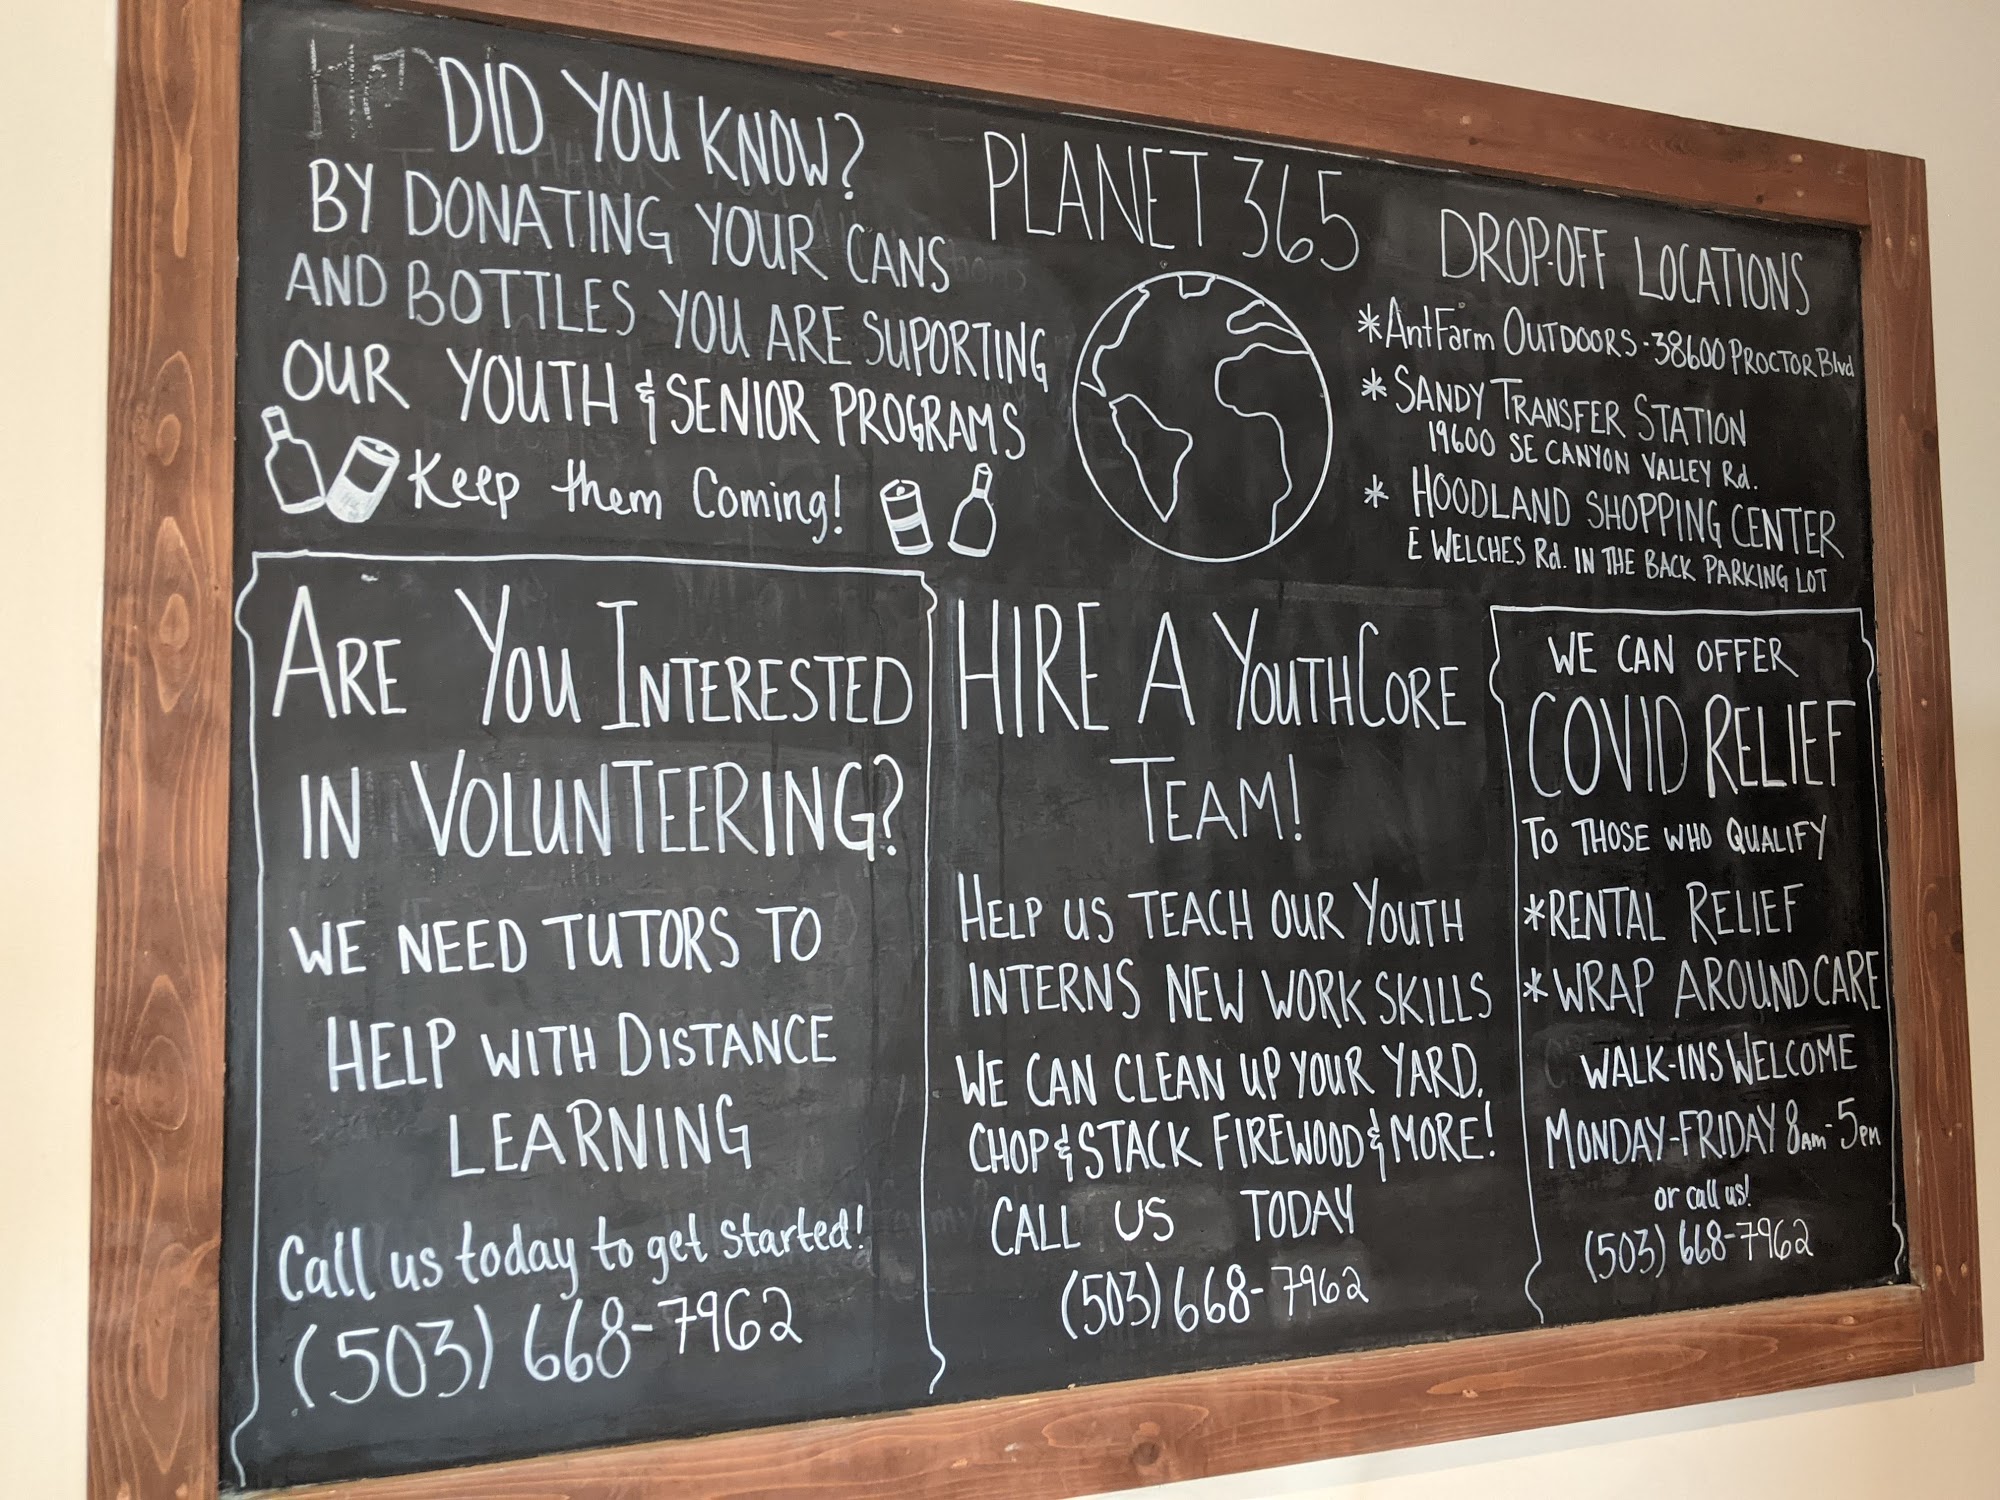 DID YOU KNOW?
BY DONATING YOUR CANS
AND BOTTLES YOU ARE SUPORTING
OUR YOUTH & SENIOR PROGRAMS
Keep them Coming!
PLANET 365
DROP-OFF LOCATIONS
*AntFarm OUTDOORS - 38600 PROCTOR Blvd
* SANDY TRANSFER STATION
19600 SE CANYON VALLEY Rd.
* HOODLAND SHOPPING CENTER
E WELCHES Rd. IN THE BACK PARKING LOT
ARE YOU INTERESTED
IN VOLUNTEERING?
WE NEED TUTORS TO
HELP WITH DISTANCE
LEARNING
Call us today to get started!
(503) 668-7962
HIRE A YOUTHCORE
TEAM!
HELP US TEACH OUR YOUTH
INTERNS NEW WORK SKILLS
WE CAN CLEAN UP YOUR YARD,
CHOP & STACK FIREWOOD & MORE!
CALL US TODAY
(503) 668-7962
WE CAN OFFER
COVID RELIEF
TO THOSE WHO QUALIFY
*RENTAL RELIEF
*WRAP AROUND CARE
WALK-INS WELCOME
MONDAY-FRIDAY 8AM-5PM
or call us!
(503) 668-7962